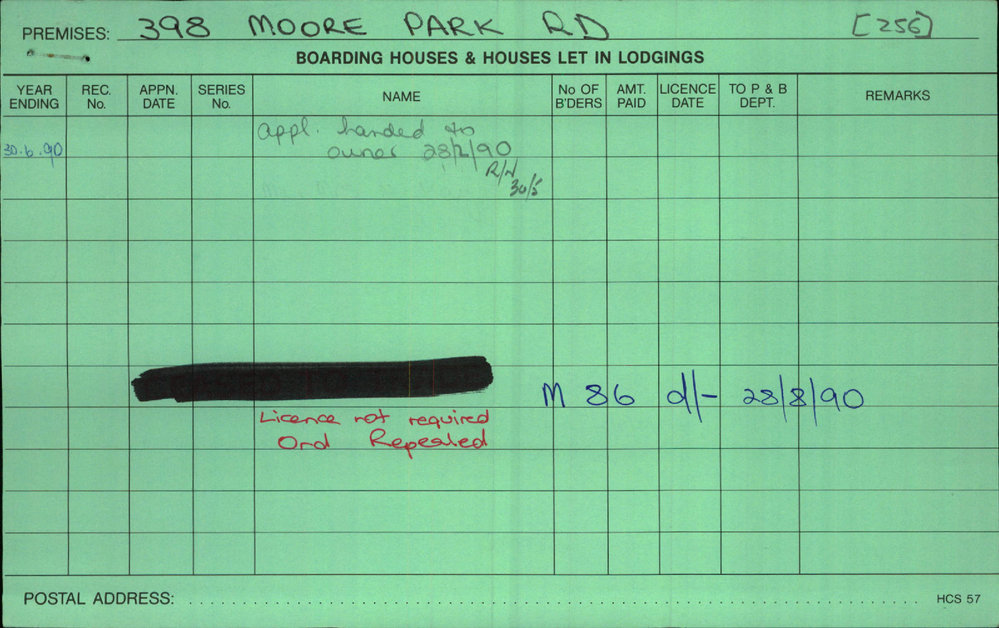 PREMISES: 398 MOORE PARK RD [256]
BOARDING HOUSES & HOUSES LET IN LODGINGS
YEAR ENDING REC. No. APPN. DATE SERIES No. NAME No OF B'DERS AMT. PAID LICENCE DATE TO P & B DEPT. REMARKS
appl. handed to
30.6.90 owner 28/2/90
30/5
M 86 d/- 28/8/90
Licence not required
Ord Repealed
POSTAL ADDRESS:
HCS 57